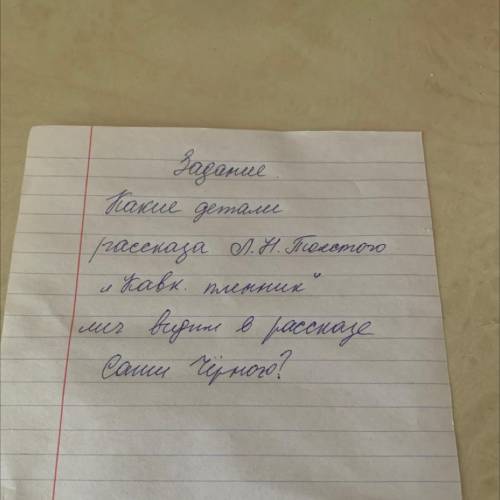 Задание.
Какие детали
рассказа Л.Н.Толстого
„Кавк. пленник"
мы видим в рассказе
Саши Чёрного?